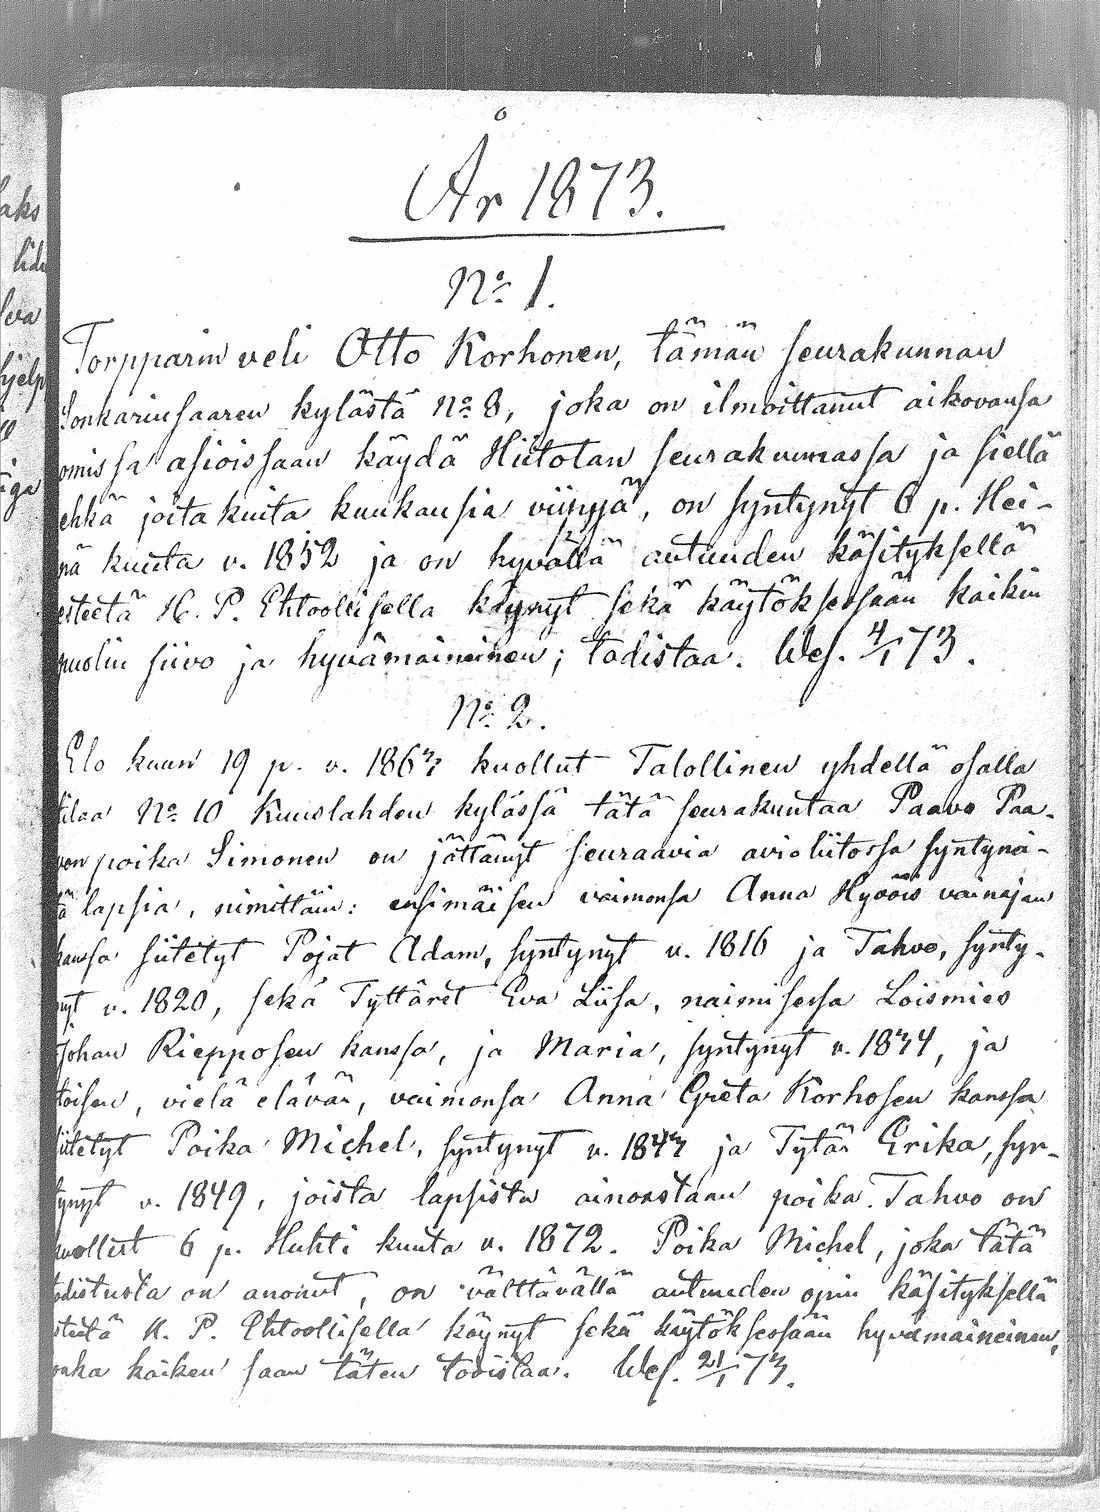 År 1873.
No 1.
Torpparin veli Otto Korhonen, tämän seurakunnan
Sonkarinsaaren kylästä No 8, joka on ilmoittanut aikovansa
omissa asioissaan käydä Hiitolan seurakunnassa ja siellä
ehkä joitakuita kuukausia viipyä, on syntynyt 6 p. Hei-
nä kuuta v. 1852 ja on hyvällä autuuden käsityksellä
esteetä H. P. Ehtoollisella käynyt sekä käytöksessään kaikin
puolin siivo ja hyvämaineinen; todistaa. Wes. 4/1 73.
No 2.
Elo kuun 19 p. v. 1867 kuollut Talollinen yhdellä osalla
tilaa No 10 Kuuslahden kylässä tätä seurakuntaa Paavo Paa-
von poika Simonen on jättänyt seuraavia avioliitossa syntynei-
tä lapsia, nimittäin: ensimäisen vaimonsa Anna Hyvöis vainajan
kanssa siitetyt Pojat Adam, syntynyt v. 1816 ja Tahvo, synty-
nyt v. 1820, sekä Tyttäret Eva Liisa, naimisessa Loismies
Johan Riepposen kanssa, ja Maria, syntynyt v. 1834, ja
toisen, vielä elävän, vaimonsa Anna Greta Korhosen kanssa
siitetyt Poika Michel, syntynyt v. 1847 ja Tytär Erika, syn-
tynyt v. 1849, joista lapsista ainoastaan poika Tahvo on
kuollut 6 p. Huhti kuuta v. 1872. Poika Michel, joka tätä
todistusta on anonut, on välttävällä autuuden opin käsityksellä
esteetä H. P. Ehtoollisella käynyt sekä käytöksessään hyvämaineinen,
jonka kaiken saan täten todistaa. Wes. 21/1 73.